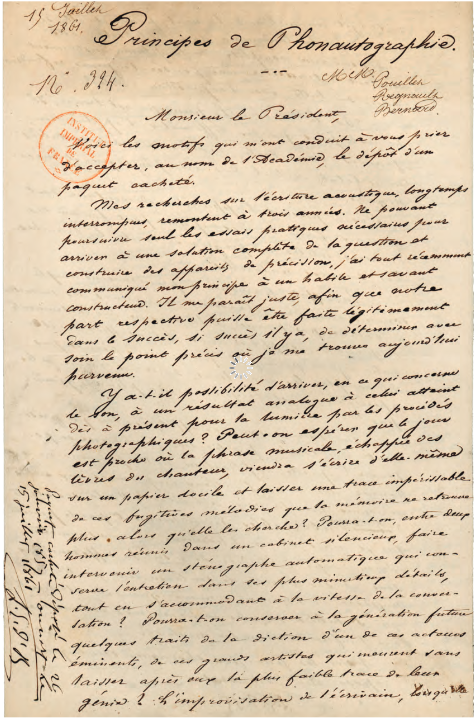 15 Juillet
1861.
Principes de Phonautographie.
N.° 324.
M.M.
Pouillet
Regnault
Bernard
Monsieur le Président,
INSTITUT
IMPÉRIAL
DE
FRANCE
Voici les motifs qui m'ont conduit à vous prier
d'accepter, au nom de l'Académie, le dépôt d'un
paquet cacheté.
Mes recherches sur l'écriture acoustique, longtemps
interrompues, remontent à trois années. Ne pouvant
poursuivre seul les essais pratiques nécessaires pour
arriver à une solution complète de la question et
construire des appareils de précision, j'ai tout récemment
communiqué mon principe à un habile et savant
constructeur. Il me paraît juste, afin que notre
part respective puisse être faite légitimement
dans le succès, si succès il y a, de déterminer avec
soin le point précis où je me trouve aujourd'hui
parvenu.
Y a-t-il possibilité d'arriver, en ce qui concerne
le son, à un résultat analogue à celui atteint
dès à présent pour la lumière par les procédés
photographiques? Peut-on espérer que le jour
est proche où la phrase musicale, échappée des
lèvres du chanteur, viendra s'écrire d'elle-même
sur un papier docile et laisser une trace impérissable
de ces fugitives mélodies que la mémoire ne retrouve
plus alors qu'elle les cherche? Pourra-t-on, entre deux
hommes réunis dans un cabinet silencieux, faire
intervenir un sténographe automatique qui con-
serve l'entretien dans ses plus minutieux détails
tout en s'accommodant à la vitesse de la conver-
sation? Pourra-t-on conserver à la génération future
quelques traits de la diction d'un de ces acteurs
éminents, de ces grands artistes qui meurent sans
laisser après eux la plus faible trace de leur
génie? L'improvisation de l'écrivain, lorsqu'elle
Paquet cacheté déposé le 26
janvier 1857, ouvert le
15 juillet 1861